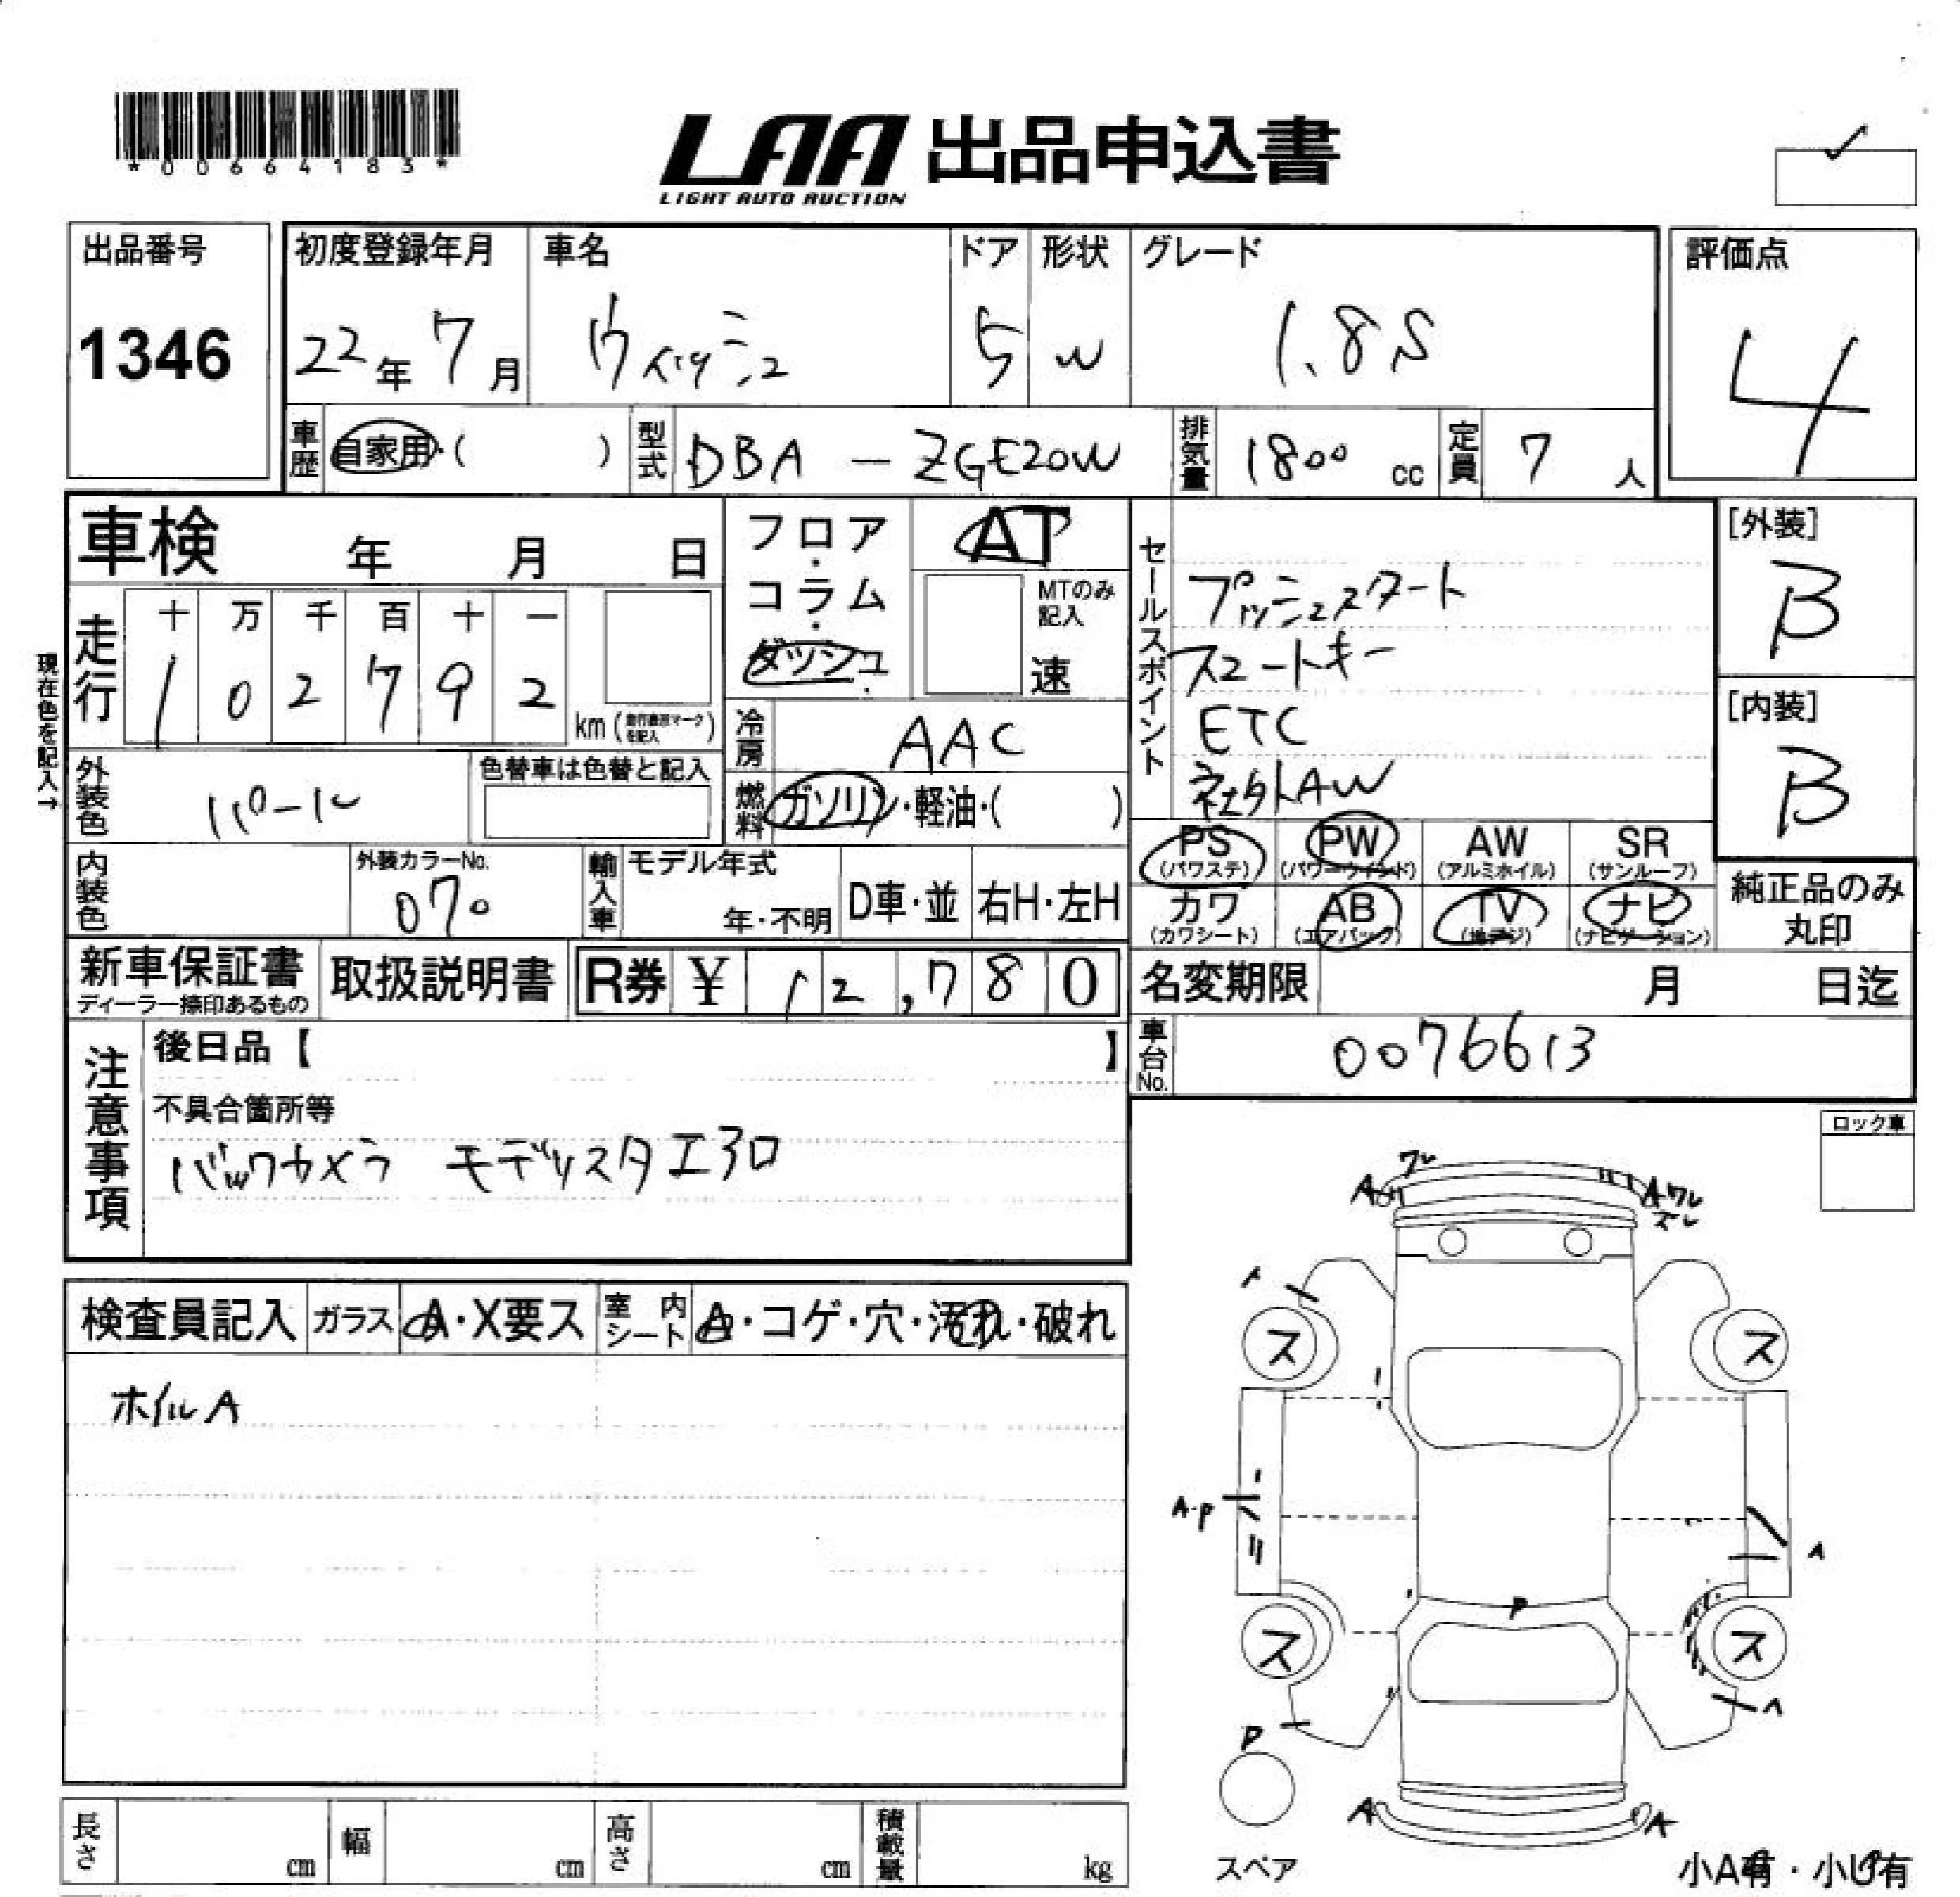 *00664183*
LAA 出品申込書
LIGHT AUTO AUCTION
出品番号
1346
初度登録年月 車名 ドア 形状 グレード
22年 7月 ウィッシュ 5 W 1.8S
評価点
4
車歴 自家用・( ) 型式 DBA - ZGE20W 排気量 1800 cc 定員 7 人
車検 年 月 日
フロア・コラム・ダッシュ
AT
MTのみ記入
速
現在色を記入→
走行 十 万 千 百 十 一
1 0 2 7 9 2
km (走行表示マークを記入)
冷房 AAC
外装色 パール
色替車は色替と記入
燃料 ガソリン・軽油・( )
内装色
外装カラーNo.
070
輸入車 モデル年式
年・不明 D車・並 右H・左H
セールスポイント
プッシュスタート
スマートキー
ETC
社外AW
[外装]
B
[内装]
B
PS (パワステ) PW (パワーウインド) AW (アルミホイル) SR (サンルーフ)
カワ (カワシート) AB (エアバック) TV (地デジ) ナビ (ナビゲーション)
純正品のみ丸印
新車保証書
ディーラー捺印あるもの
取扱説明書
R券 ¥ 12,780
名変期限 月 日迄
車台No. 0076613
注意事項
後日品【 】
不具合箇所等
バックカメラ モデリスタエアロ
ロック車
検査員記入 ガラス A・X要ス 室内シート A・コゲ・穴・汚れ・破れ
ホイルA
ワレ
A
A ワレ
ズレ
A
ス ス
A・P
A
P
ス ス
A
P
A A
スペア
小A有・小U有
長さ cm 幅 cm 高さ cm 積載量 kg